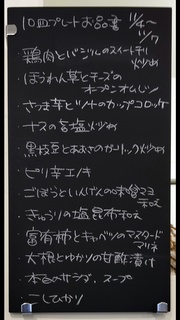 10皿プレートお品書 11/4〜11/7
・鶏肉とバジルのスイートチリ炒め
・ほうれん草とチーズのオープンオムレツ
・さつま芋とツナのカップコロッケ
・ナスの旨塩炒め
・黒枝豆とあおさのガーリック炒め
・ピリ辛エノキ
・ごぼうといんげんの味噌マヨ和え
・きゅうりの塩昆布和え
・富有柿とキャベツのマスタードマリネ
・大根とゆかりの甘酢漬け
・本日のサラダ、スープ
・こしひかり